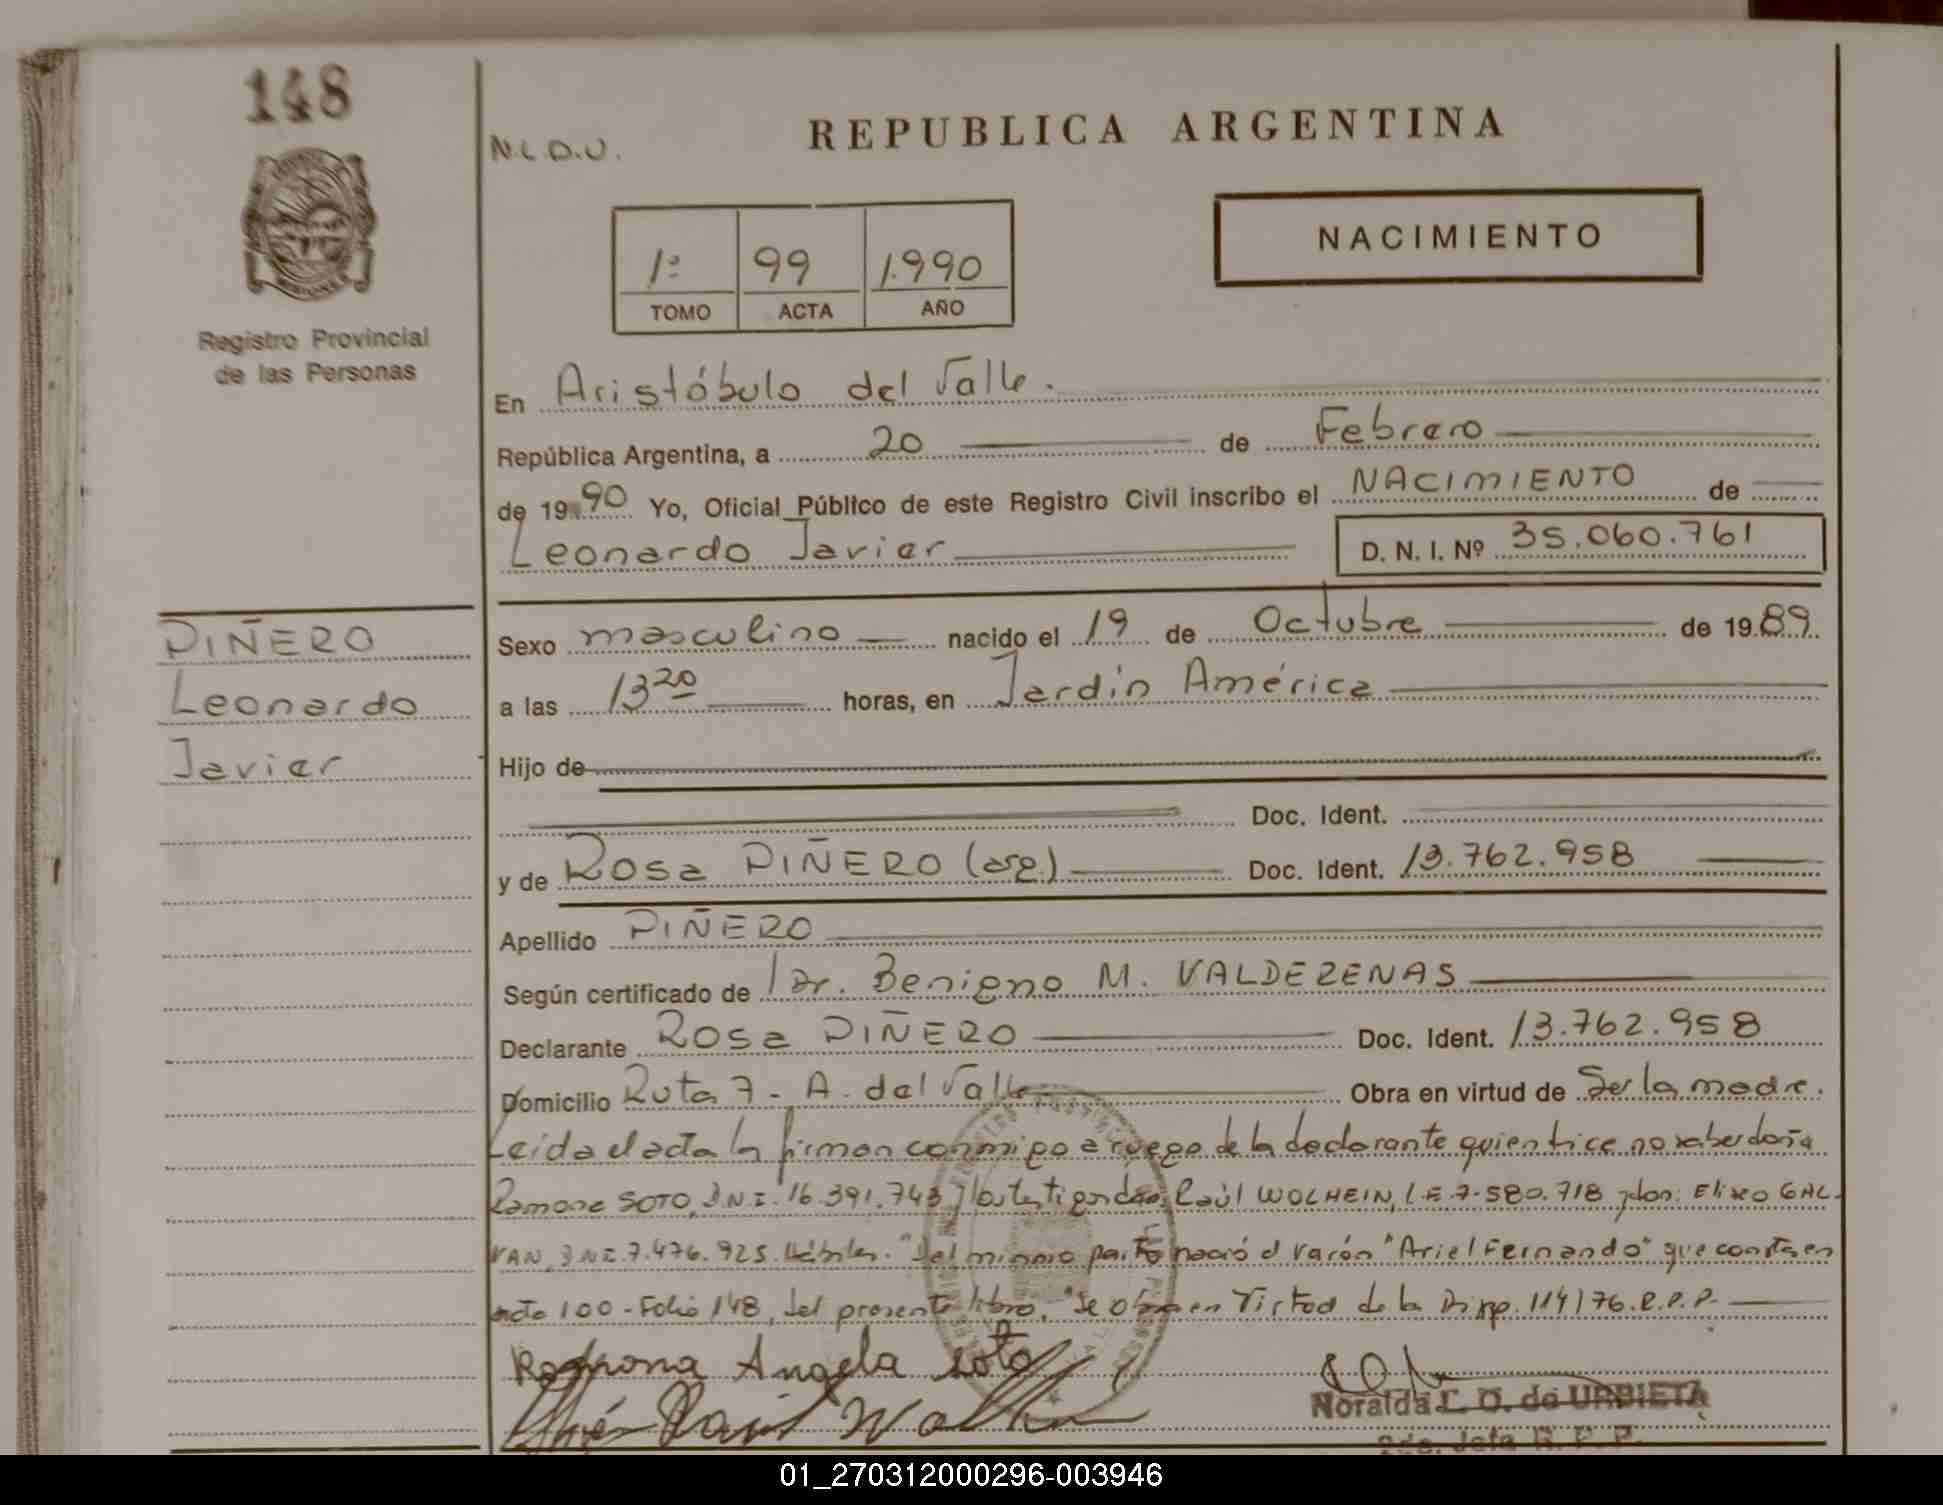 148
N.L.D.U.
REPUBLICA ARGENTINA
NACIMIENTO
1º 99 1.990
TOMO ACTA AÑO
Registro Provincial
de las Personas
En Aristóbulo del Valle.
República Argentina, a 20 de Febrero
de 1990 Yo, Oficial Público de este Registro Civil inscribo el NACIMIENTO de
Leonardo Javier D. N. I. Nº 35.060.761
PIÑERO
Leonardo
Javier
Sexo masculino nacido el 19 de Octubre de 1989
a las 13 20 horas, en Jardín América
Hijo de
Doc. Ident.
y de Rosa PIÑERO (arg.) Doc. Ident. 13.762.958
Apellido PIÑERO
Según certificado de Dr. Benigno M. VALDEZENAS
Declarante Rosa PIÑERO Doc. Ident. 13.762.958
Domicilio Ruta 7 - A. del Valle Obra en virtud de Ser la madre.
Leida el acta la firman conmigo a ruego de la declarante quien dice no saber doña
Ramona SOTO, D.N.I. 16.391.743 y los testigos don: Raúl WOLHEIN, L.E. 7.580.718 y don: Eliseo GAL-
VAN, D.N.I. 7.476.925. Hábiles. "Del mismo parto nació el varón "Ariel Fernando" que consta en
acta 100 - Folio 148, del presente libro." Se obra en Virtud de la Disp. 114/76. R.P.P.
Ramona Angela Soto
Raúl Wolhein
Noralda L. O. de URBIETA
Jefa R. P. P.
01_270312000296-003946